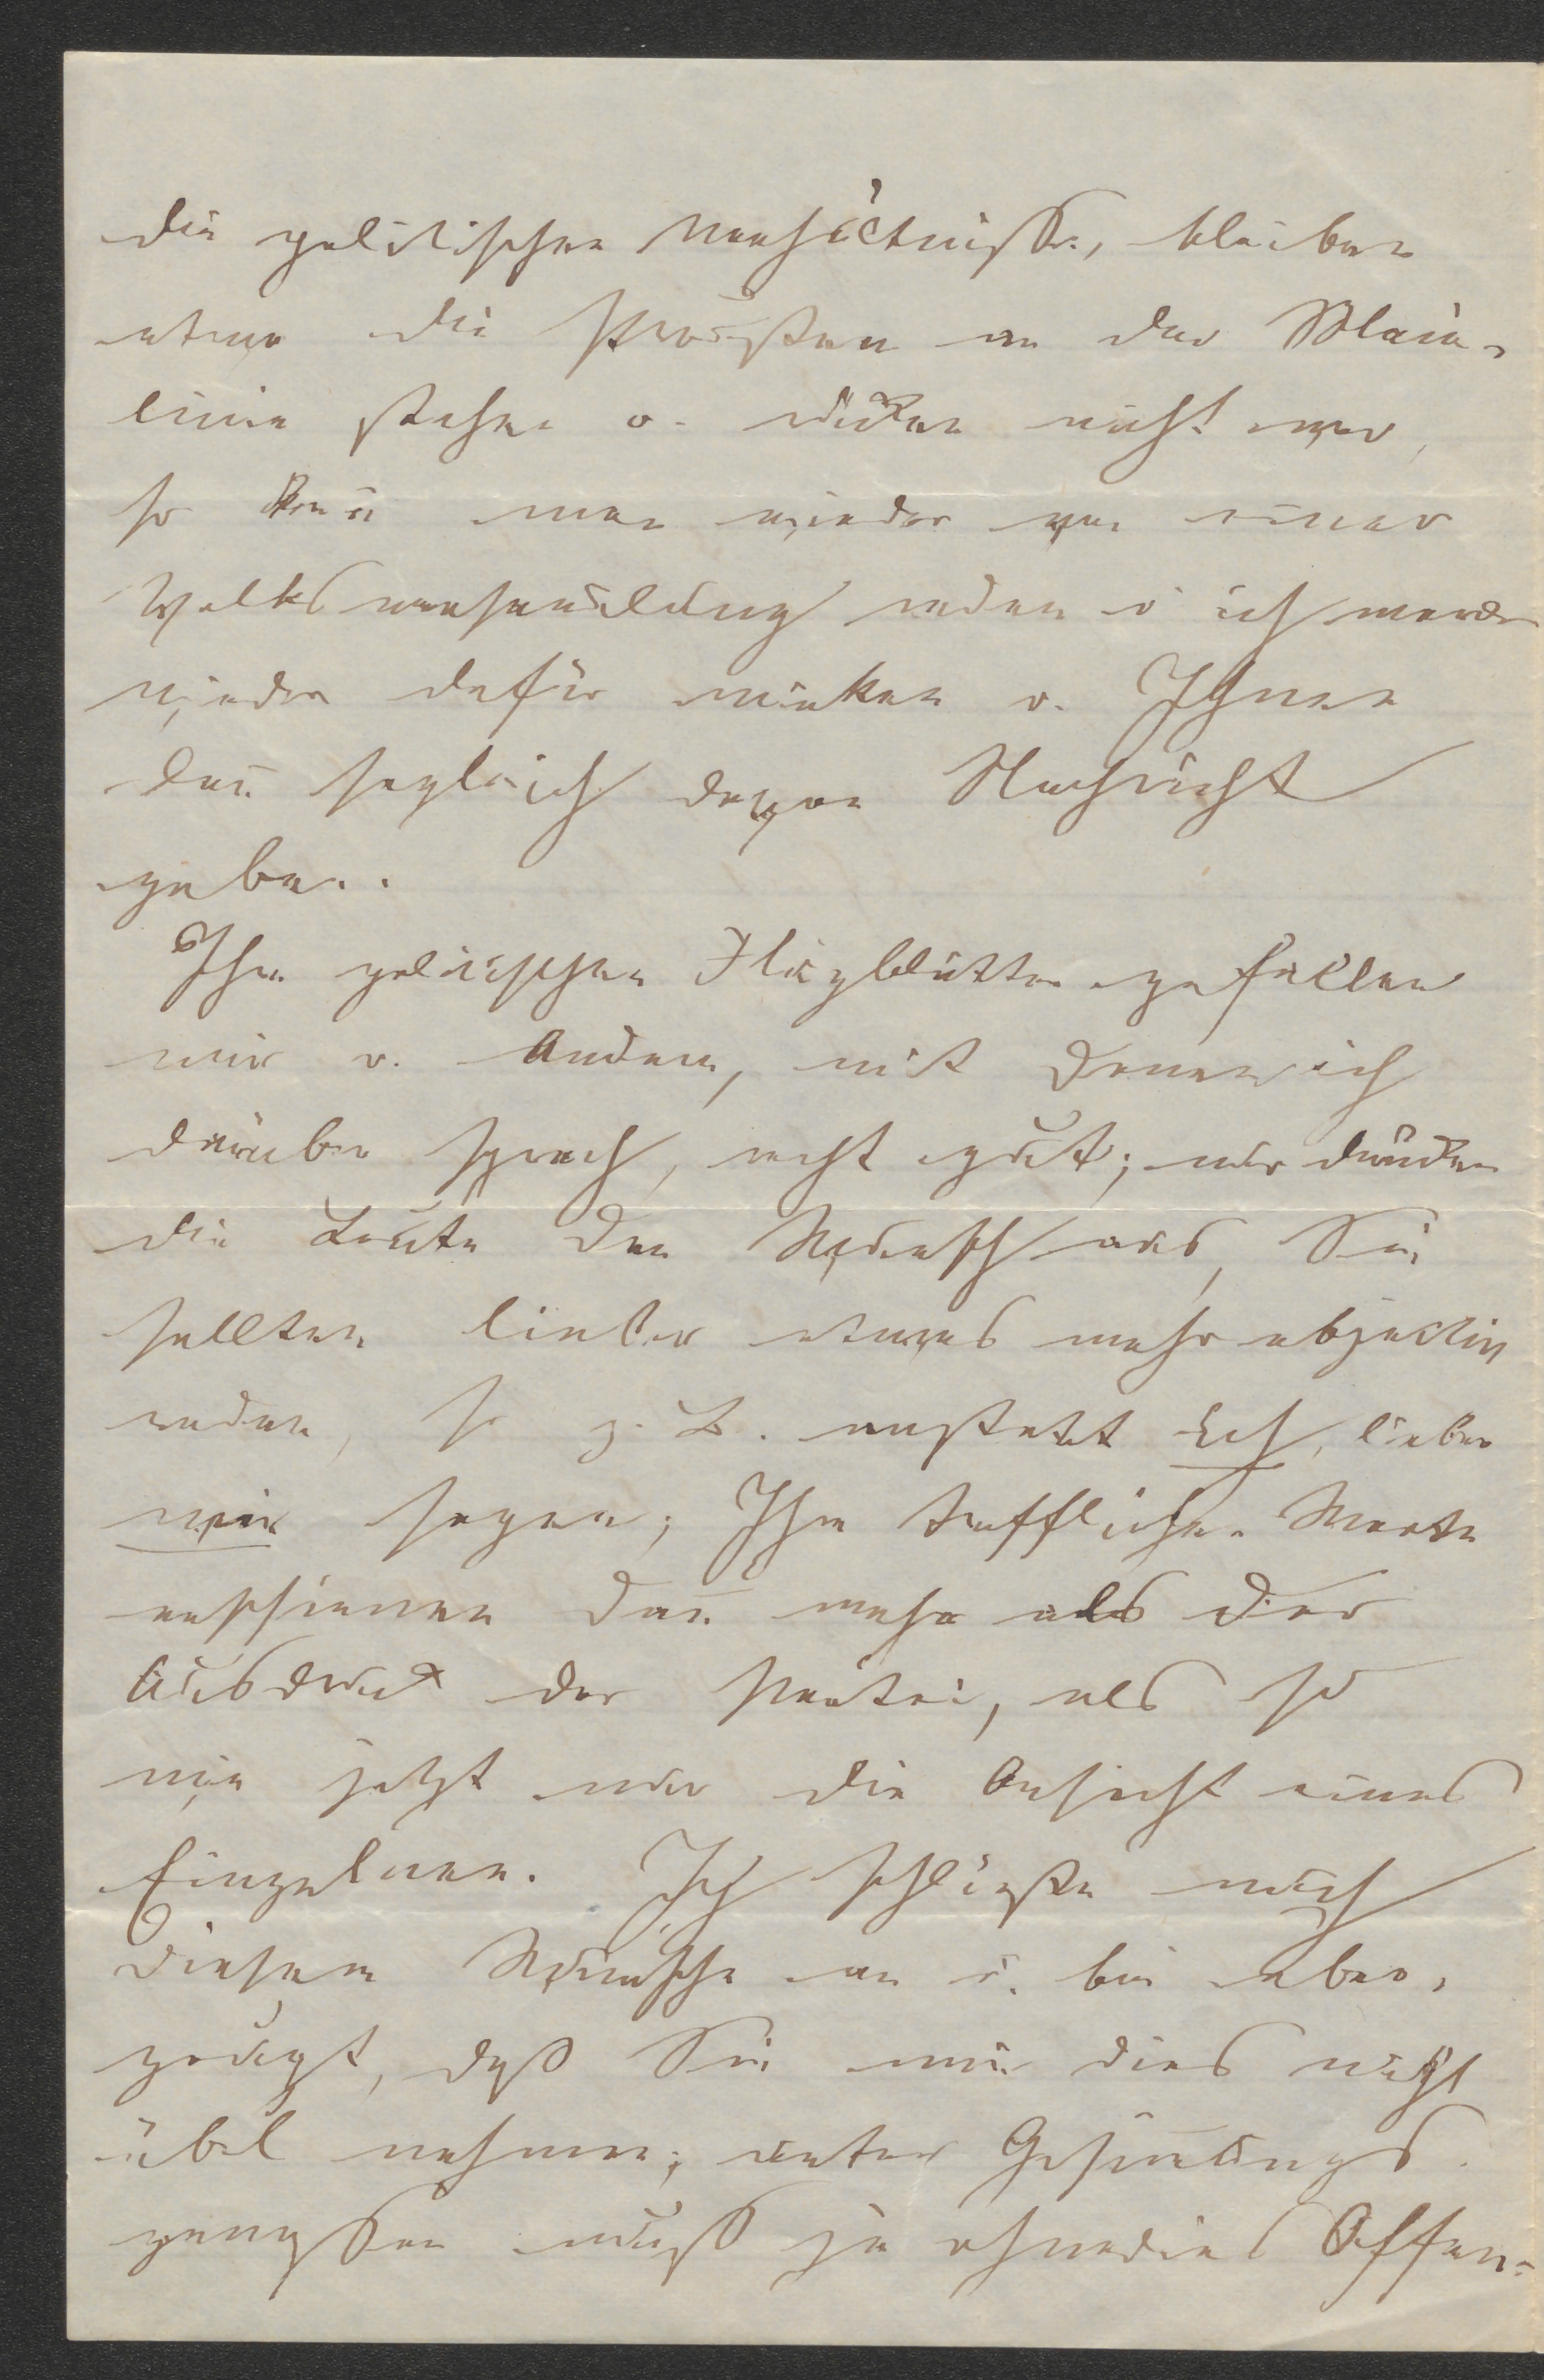 die politischen Verhältnisse, bleiben
etwa die Preußen an der Main-
linie stehen u. rücken nicht vor,
so kañ man wieder von einer
Volksversam̄lung reden u ich werde
wieder dafür wirken u. Ihnen
dañ sogleich davon Nachricht
geben.
Ihre politischen Flugblätter gefallen
mir u. Andern, mit denen ich
darüber sprach, recht gut; nur drücken
die Leute den Wunsch aus, Sie
sollten lieber etwas mehr objectiv
reden, so z. B. anstatt ich, lieber
wir sagen; Ihre trefflichen Worte
erschienen dañ mehr als der
Ausdruck der Partei, als so
wie jetzt nur die Ansicht eines
Einzelnen. Ich schließe mich
diesem Wunsche an u. bin über-
zeugt, daß Sie mir dies nicht
übel nehmen; unter Gesiñungs-
genossen muß ja ohnedies Offen-